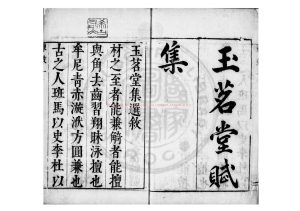 玉茗堂賦
集
玉茗堂集選敘
材之至者能兼觭者能擅
與角去齒習翔昧泳擅也
牟尼青赤漩澓方圓兼也
古之人班馬以史李杜以